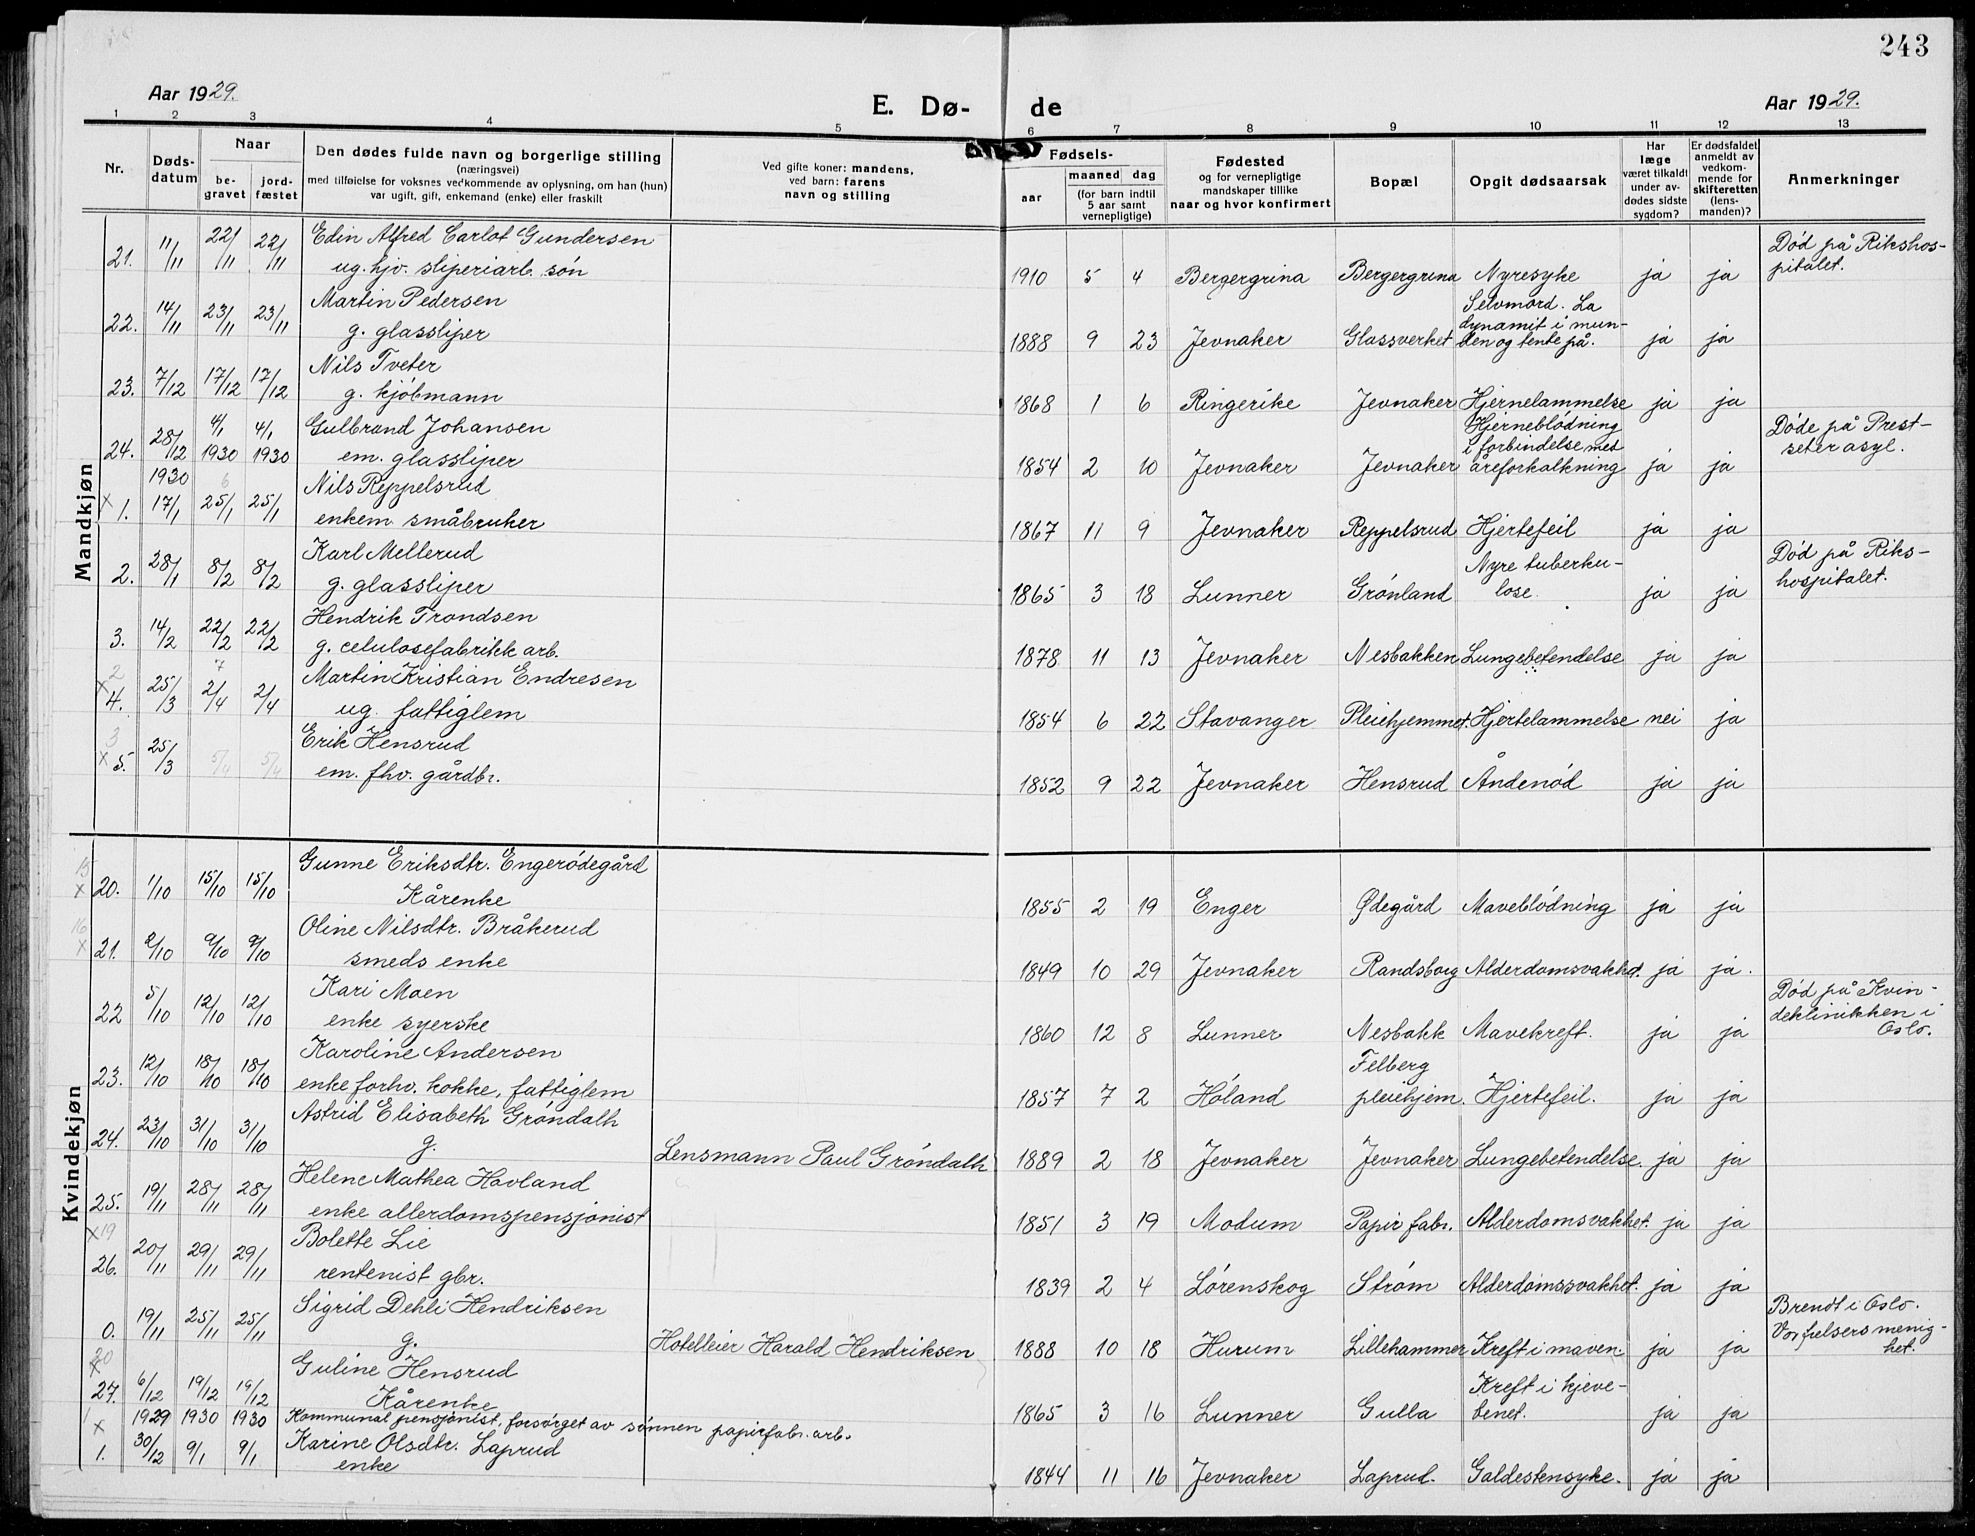 243
Aar 1929.
E. Dø- de
Aar 1929.
1 2 3 4 5 6 7 8 9 10 11 12 13
Nr.
Døds-
datum
Naar
be-
gravet
jord-
fæstet
Den dødes fulde navn og borgerlige stilling
(næringsvei)
med tilføielse for voksnes vedkommende av oplysning, om han (hun)
var ugift, gift, enkemand (enke) eller fraskilt
Ved gifte koner: mandens,
ved barn: farens
navn og stilling
Fødsels-
aar
maaned dag
(for barn indtil
5 aar samt
vernepligtige)
Fødested
og for vernepligtige
mandskaper tillike
naar og hvor konfirmert
Bopæl
Opgit dødsaarsak
Har
læge
været tilkaldt
under av-
dødes sidste
sygdom?
Er dødsfaldet
anmeldt av
vedkom-
mende for
skifteretten
(lens-
manden)?
Anmerkninger
Mandkjøn
21. 11/11 22/11 22/11 Edin Alfred Carlot Gundersen
ug. hjv. sliperiarb. søn
1910 5 4 Bergergrina Bergergrina Nyresyke ja ja Død på Rikshos-
pitalet.
22. 14/11 23/11 23/11 Martin Pedersen
g. glassliper
1888 9 23 Jevnaker Glassverket Selvmord. La
dynamit i mun-
den og tente på. ja ja
23. 7/12 17/12 17/12 Nils Tveter
g. kjøbmann
1868 1 6 Ringerike Jevnaker Hjernelammelse ja ja
24. 28/12 4/1 1930 4/1 1930 Gulbrand Johansen
em. glassliper
1854 2 10 Jevnaker Jevnaker Hjerneblødning
i forbindelse med
åreforkalkning ja ja Døde på Prest-
seter asyl.
1930 6
x 1. 17/1 25/1 25/1 Nils Reppelsrud
enkem. småbruker
1867 11 9 Jevnaker Reppelsrud Hjertefeil ja ja
2. 28/1 8/2 8/2 Karl Mellerud
g. glassliper
1865 3 18 Lunner Grønland Nyre tuberku-
lose. ja ja Død på Riks-
hospitalet.
3. 14/2 22/2 22/2 Hendrik Trondsen
g. celulosefabrikk arb.
1878 11 13 Jevnaker Nesbakken Lungebetendelse ja ja
2 7
x 4. 25/3 2/4 2/4 Martin Kristian Endresen
ug. fattiglem
1854 6 22 Stavanger Pleiehjemmet. Hjertelammelse nei ja
3
x 5. 25/3 5/4 5/4 Erik Hensrud
em. fhv. gårdbr.
1852 9 22 Jevnaker Hensrud Åndenød ja ja
Kvindekjøn
15
x 20. 1/10 15/10 15/10 Gunne Eriksdtr. Engerødegård
Kårenke
1855 2 19 Enger Ødegård Maveblødning ja ja
16
x 21. 2/10 9/10 9/10 Oline Nilsdtr. Bråkerud
smeds enke
1849 10 29 Jevnaker Randsborg Alderdomsvakhet. ja ja.
22 5/10 12/10 12/10 Kari Moen
enke syerske
1860 12 8 Lunner Nesbakk Mavekreft. ja ja Død på Kvin-
deklinikken i
Oslo.
23. 12/10 18/10 18/10 Karoline Andersen
enke forhv. kokke, fattiglem
1857 7 2 Høland Felberg
pleiehjem. Hjertefeil. ja ja
24. 23/10 31/10 31/10 Astrid Elisabeth Grøndalh
g. Lensmann Paul Grøndalh
1889 2 18 Jevnaker Jevnaker Lungebetendelse. ja ja
25. 19/11 28/11 28/11 Helene Mathea Hovland
enke allerdomspensjonist
1851 3 19 Modum Papirfabr. Alderdomsvakhet. ja ja
x 19
26. 20/11 29/11 29/11 Bolette Lie
rentenist gbr.
1839 2 4 Lørenskog Strøm Alderdomssvakhet. ja ja
0. 19/11 25/11 25/11 Sigrid Dehli Hendriksen
g. Hotelleier Harald Hendriksen
1888 10 18 Hurum Lillehammer Kreft i maven. ja ja Brendt i Oslo.
Vor frelsers menig-
het.
20
x 27. 6/12 19/12 19/12 Guline Hensrud
Kårenke
1865 3 16 Lunner Gulla Kreft i kjeve-
benet. ja ja
1929 1930 1930 Kommunal pensjonist, forsørget av sønnen papirfabr. arb.
x 1. 30/12 9/1 9/1 Karine Olsdtr. Laprud
enke
1844 11 16 Jevnaker Laprud. Galdestensyke. ja ja